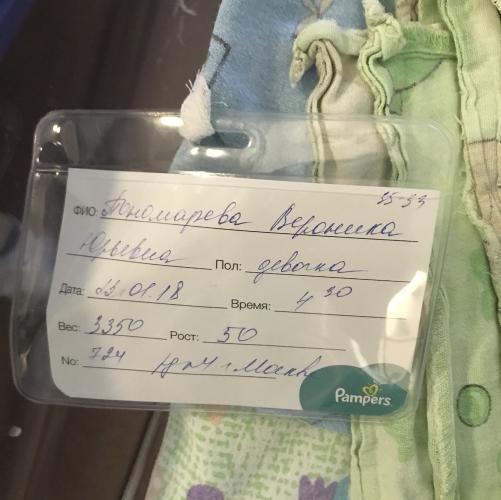 35-33
ФИО: Пономарева Вероника
Юрьевна Пол: девочка
Дата: 23.01.18 Время: 4 30
Вес: 3350 Рост: 50
No: 724 г Москв
Pampers